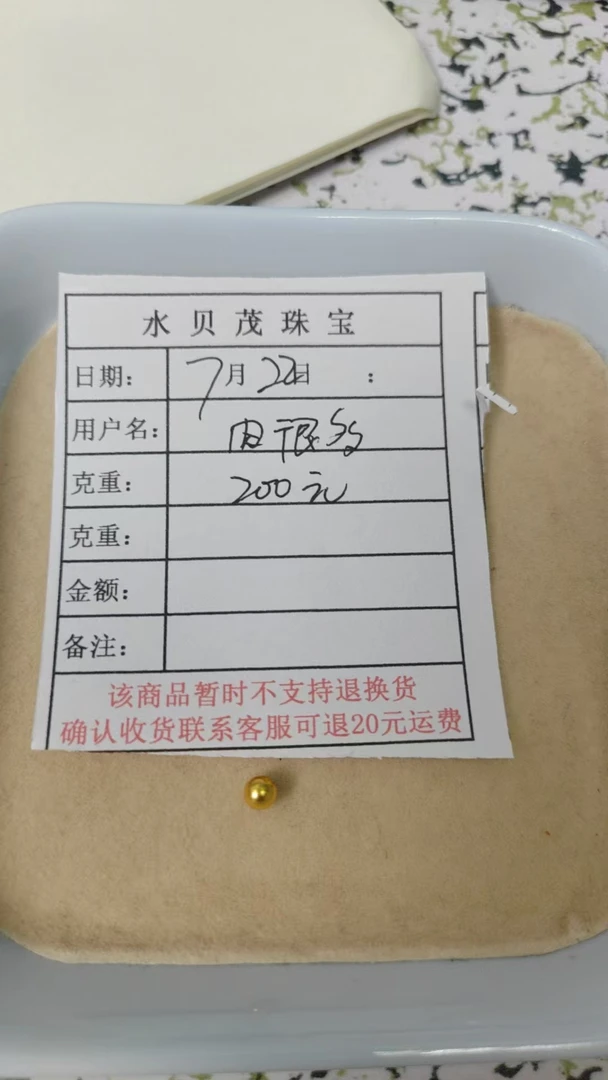 水贝茂珠宝
日期: 7月22日 :
用户名:
克重: 200元
克重:
金额:
备注:
该商品暂时不支持退换货
确认收货联系客服可退20元运费